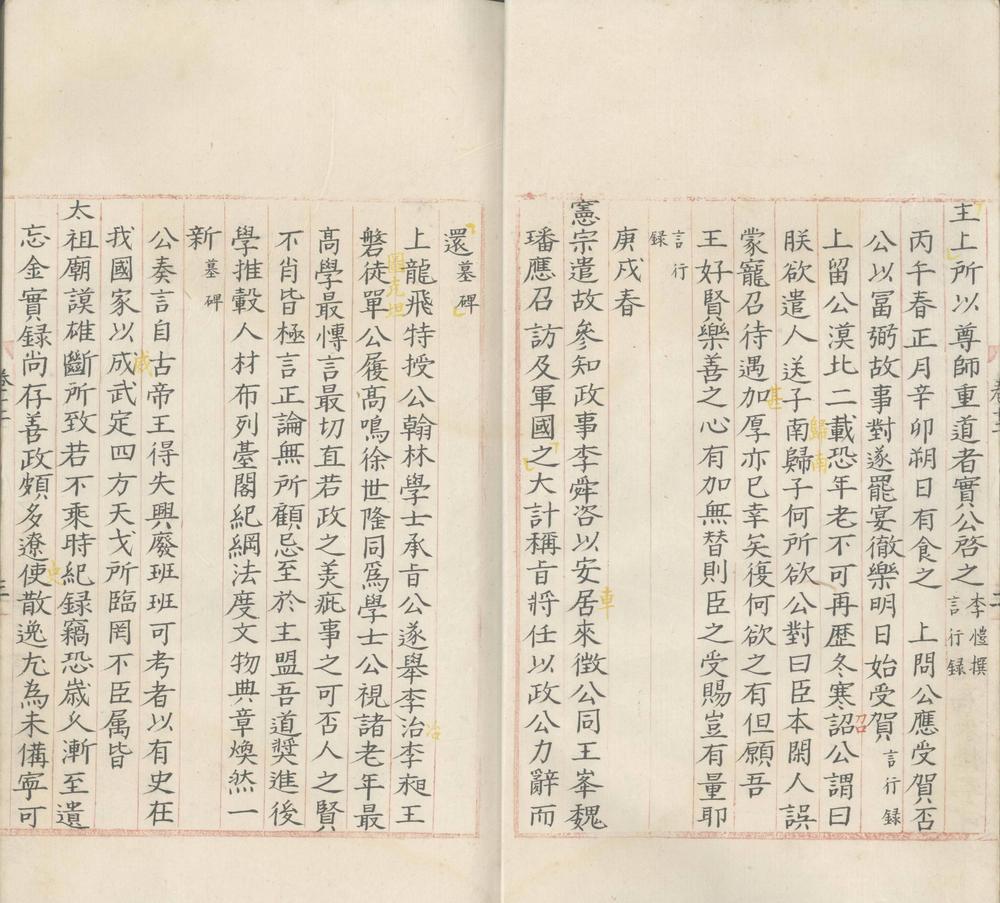 主上所以尊師重道者實公啓之李愷撰言行録
丙午春正月辛卯朔日有食之　上問公應受賀否
公以冨弼故事對遂罷宴徹樂明日始受賀言行録
上留公漠北二載恐年老不可再歷冬寒詔公謂曰
朕欲遣人送子南歸子何所欲公對曰臣本閑人誤
蒙寵召待遇加厚亦已幸矣復何欲之有但願吾
王好賢樂善之心有加無替則臣之受賜豈有量耶
言行録
庚戌春
憲宗遣故參知政事李舜咨以安居來徵公同王峯魏
璠應召訪及軍國之大計稱旨將任以政公力辭而
還墓碑
上龍飛特授公翰林學士承旨公遂舉李治李昶王
磐徒單公履髙鳴徐世隆同爲學士公視諸老年最
髙學最慱言最切直若政之美疵事之可否人之賢
不肖皆極言正論無所顧忌至於主盟吾道奬進後
學推轂人材布列臺閣紀綱法度文物典章煥然一
新墓碑
公奏言自古帝王得失興廢班班可考者以有史在
我國家以成武定四方天戈所臨罔不臣属皆
太祖廟謨雄斷所致若不乘時紀録竊恐歲久漸至遺
忘金實録尚存善政頗多遼使散逸尤為未備寧可
甚
歸南
召
車
圖克坦
冶
威
史